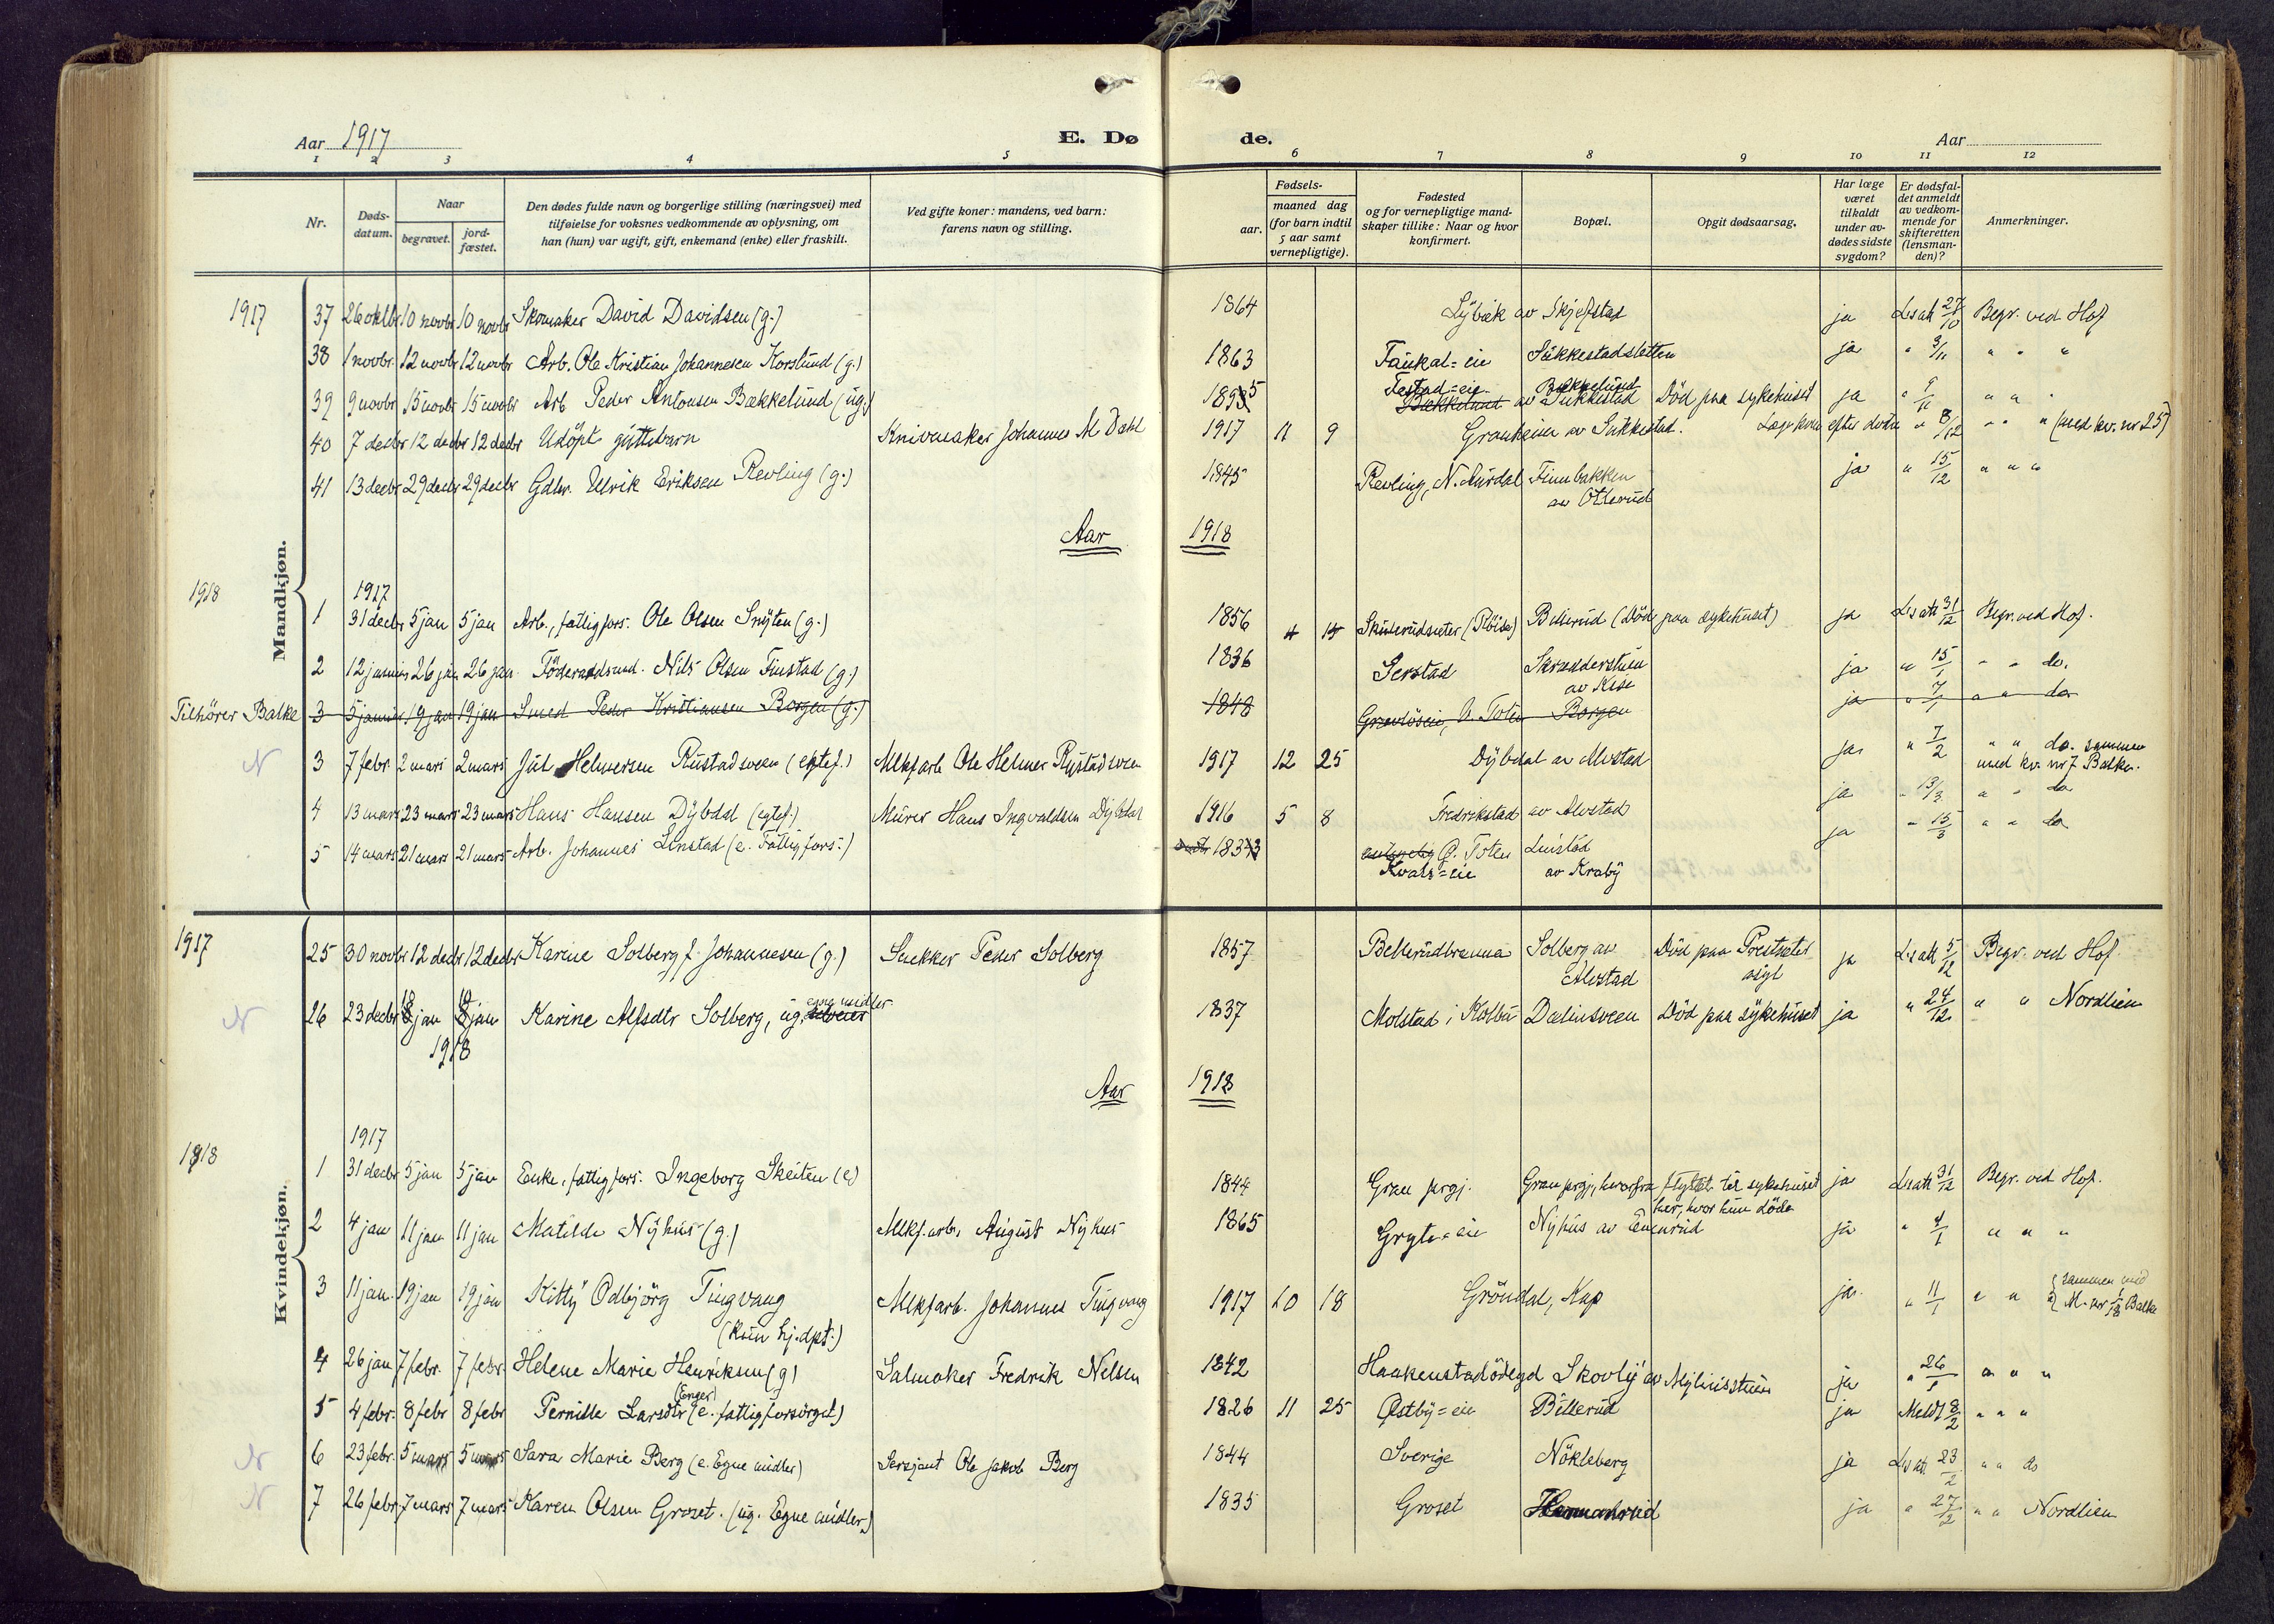 Aar 1917 E. Dø de. Aar
1 2 3 4 5 6 7 8 9 10 11 12
Nr. Døds-datum. Naar begravet. jord-fæstet. Den dødes fulde navn og borgerlige stilling (næringsvei) med tilføielse for voksnes vedkommende av oplysning, om han (hun) var ugift, gift, enkemand (enke) eller fraskilt. Ved gifte koner: mandens, ved barn: farens navn og stilling. Fødsels- aar. maaned dag (for barn indtil 5 aar samt vernepligtige). Fødested og for vernepligtige mand-skaper tillike: Naar og hvor konfirmert. Bopæl. Opgit dødsaarsag. Har læge været tilkaldt under av-dødes sidste sygdom? Er dødsfal-det anmeldt av vedkom-mende for skifteretten (lensman-den)? Anmerkninger.
Mandkjøn.
1917 37 26 oktbr 10 novbr 10 novbr Skomaker David Davidsen (g.) 1864 Lybæk av Skjefstad ja L.s att 27/10 Begr. ved Hof
38 1 novbr. 12 novbr 12 novbr Arb. Ole Kristian Johannesen Korslund (g.) 1863 Faukal=eie Sukkestadsletten ja " 3/11 " " "
39 9 novbr 15 novbr 15 novbr Arb Peder Antonsen Bækkelund (ug.) 1895 Festad=eie Bækkelund av Sukkestad Död paa sykehuset ja " 9/11 " " "
40 7 decbr 12 decbr 12 decbr Udöpt guttebarn Knivmaker Johannes M Dahl 1917 11 9 Granheim av Sukkestad. efter döden " 8/12 " " " (med kv. nr 25)
41 13 decbr 29 decbr 29 decbr Gdbr. Ulrik Eriksen Revling (g.) 1845 Revling, N. Aurdal Finnbakken av Otterud ja " 15/12 " " "
Aar 1918
1918 1917
1 31 decbr 5 jan 5 jan Arb., fattigfors. Ole Olsen Snyten (g.) 1856 4 15 Skuterudsæter (Flöise) Billerud (Död paa sykehuset) ja L.s att 31/12 Begr. ved Hof.
2 12 januar 26 jan 26 jan. Föderaadsmd. Nils Olsen Finstad (g.) 1836 Serstad Skrædderstuen av Kise ja " 15/1 " " do.
Tilhörer Balke 3 5 januar 19 jan 19 jan Smed Peder Kristiansen Borgen (g.) 1848 Toten Borgen ja " 7/1 " " do
N 3 7 febr. 2 mars 2 mars Jul Helmersen Rustadsveen (egtef.) Mlkfarb Ole Helmer Rustadsveen 1917 12 25 Dybdal av Alvstad ja. " 7/2 " " do. sammen med kv. nr 7 Balke.
4 13 mars 23 mars 23 mars Hans Hansen Dybdal (egtef.) Murer Hans Ingvaldsen Dybdal 1916 5 8 Fredrikstad av Alvstad ja " 13/3 " " do
5 14 mars 21 mars 21 mars Arb. Johannes Linstad (e. Fattigfors.) 1833 Ö. Toten Kvals=eie Linstad av Kraby ja " 15/3 " " do
Kvindekjøn.
1917 25 30 novbr 12 decbr 12 decbr Karine Solberg f. Johannesen (g.) Snekker Peder Solberg 1857 Billerudbrenna Solberg av Alvstad Död paa Prestsæter asyl ja L.s att 5/12 Begr. ved Hof
N 26 23 decbr 18 jan 18 jan Karine Alfsdtr Solberg, ug. egne midler 1837 Molstad i Kolbu Dælinsveen Död paa sykehuset ja " 24/12 " " Nordlien
1918
Aar 1918
1918 1917
1 31 decbr 5 jan 5 jan Enke, fattigfors. Ingeborg Skeiten (e) 1844 Gran prgj. Gran prgj, hvorfra flyttet til sykehuset her, hvor hun döde ja L.s att 31/12 Begr. ved Hof.
2 4 jan 11 jan 11 jan Matilde Nyhus (g.) Mlkf. arb. August Nyhus 1865 Gryte=eie Nyhus av Einerud ja " 4/1 " " "
3 11 jan. 19 jan 19 jan Kitty Odbjörg Tingvang (kun hj. dpt.) Mlkfarb. Johannes Tingvang 1917 10 18 Gröndal, Kap ja. " 11/1 " " sammen med M. nr 1/18 Balke
4 26 jan 7 febr. 7 febr. Helene Marie Henriksen (g) Salmaker Fredrik Nelsen 1842 Haakenstadödegd Skovly av Mylinsstuen ja " 26/1 " " "
5 4 febr. 8 febr 8 febr Pernille Larsdtr (Enger) (e. fattigforsörget) 1826 11 25 Østby=eie Billerud ja Meldt 8/2 " " "
N 6 23 febr. 5 mars 5 mars Sara Marie Berg (e. Egne midler) Sersjant Ole Jakob Berg 1844 Sverige Nökleberg ja L.s at. 23/2 " " do
N 7 26 febr. 7 mars 7 mars Karen Olsen Groset. (ug. Egne midler) 1835 Groset ja " 27/2 " " Nordlien